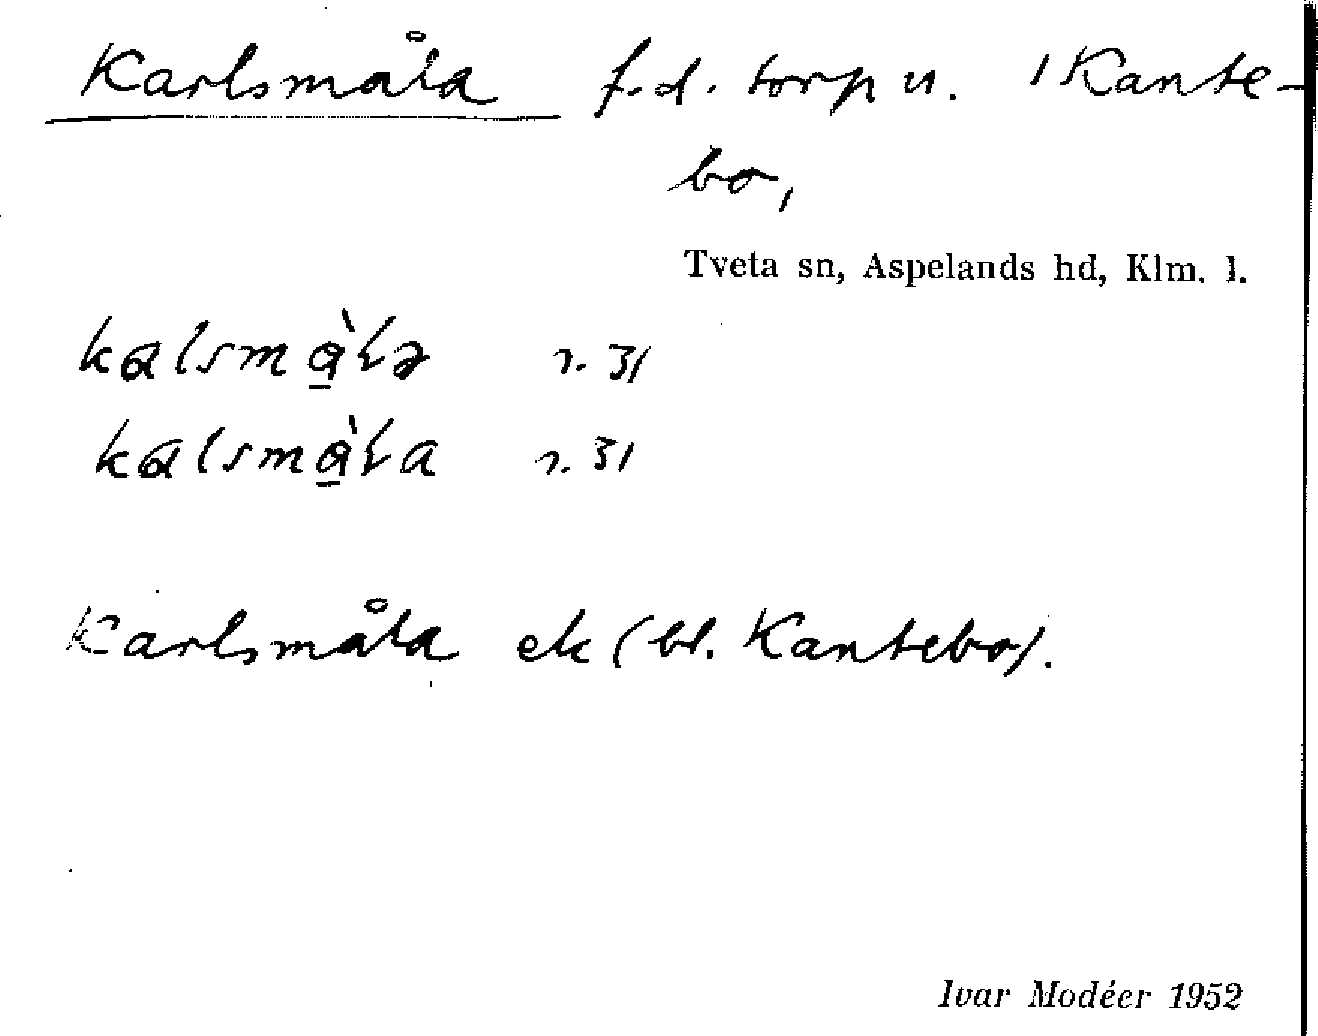 Karlsmåla f.d. torp u. 1 Kante-
bo,
Tveta sn, Aspelands hd, Klm. l.
kɑlsmɑ̱̀ɫə r. 31
kɑlsmɑ̱̀ɫa r. 31
Karlsmåla ek (bl. Kantebo).
Ivar Modéer 1952